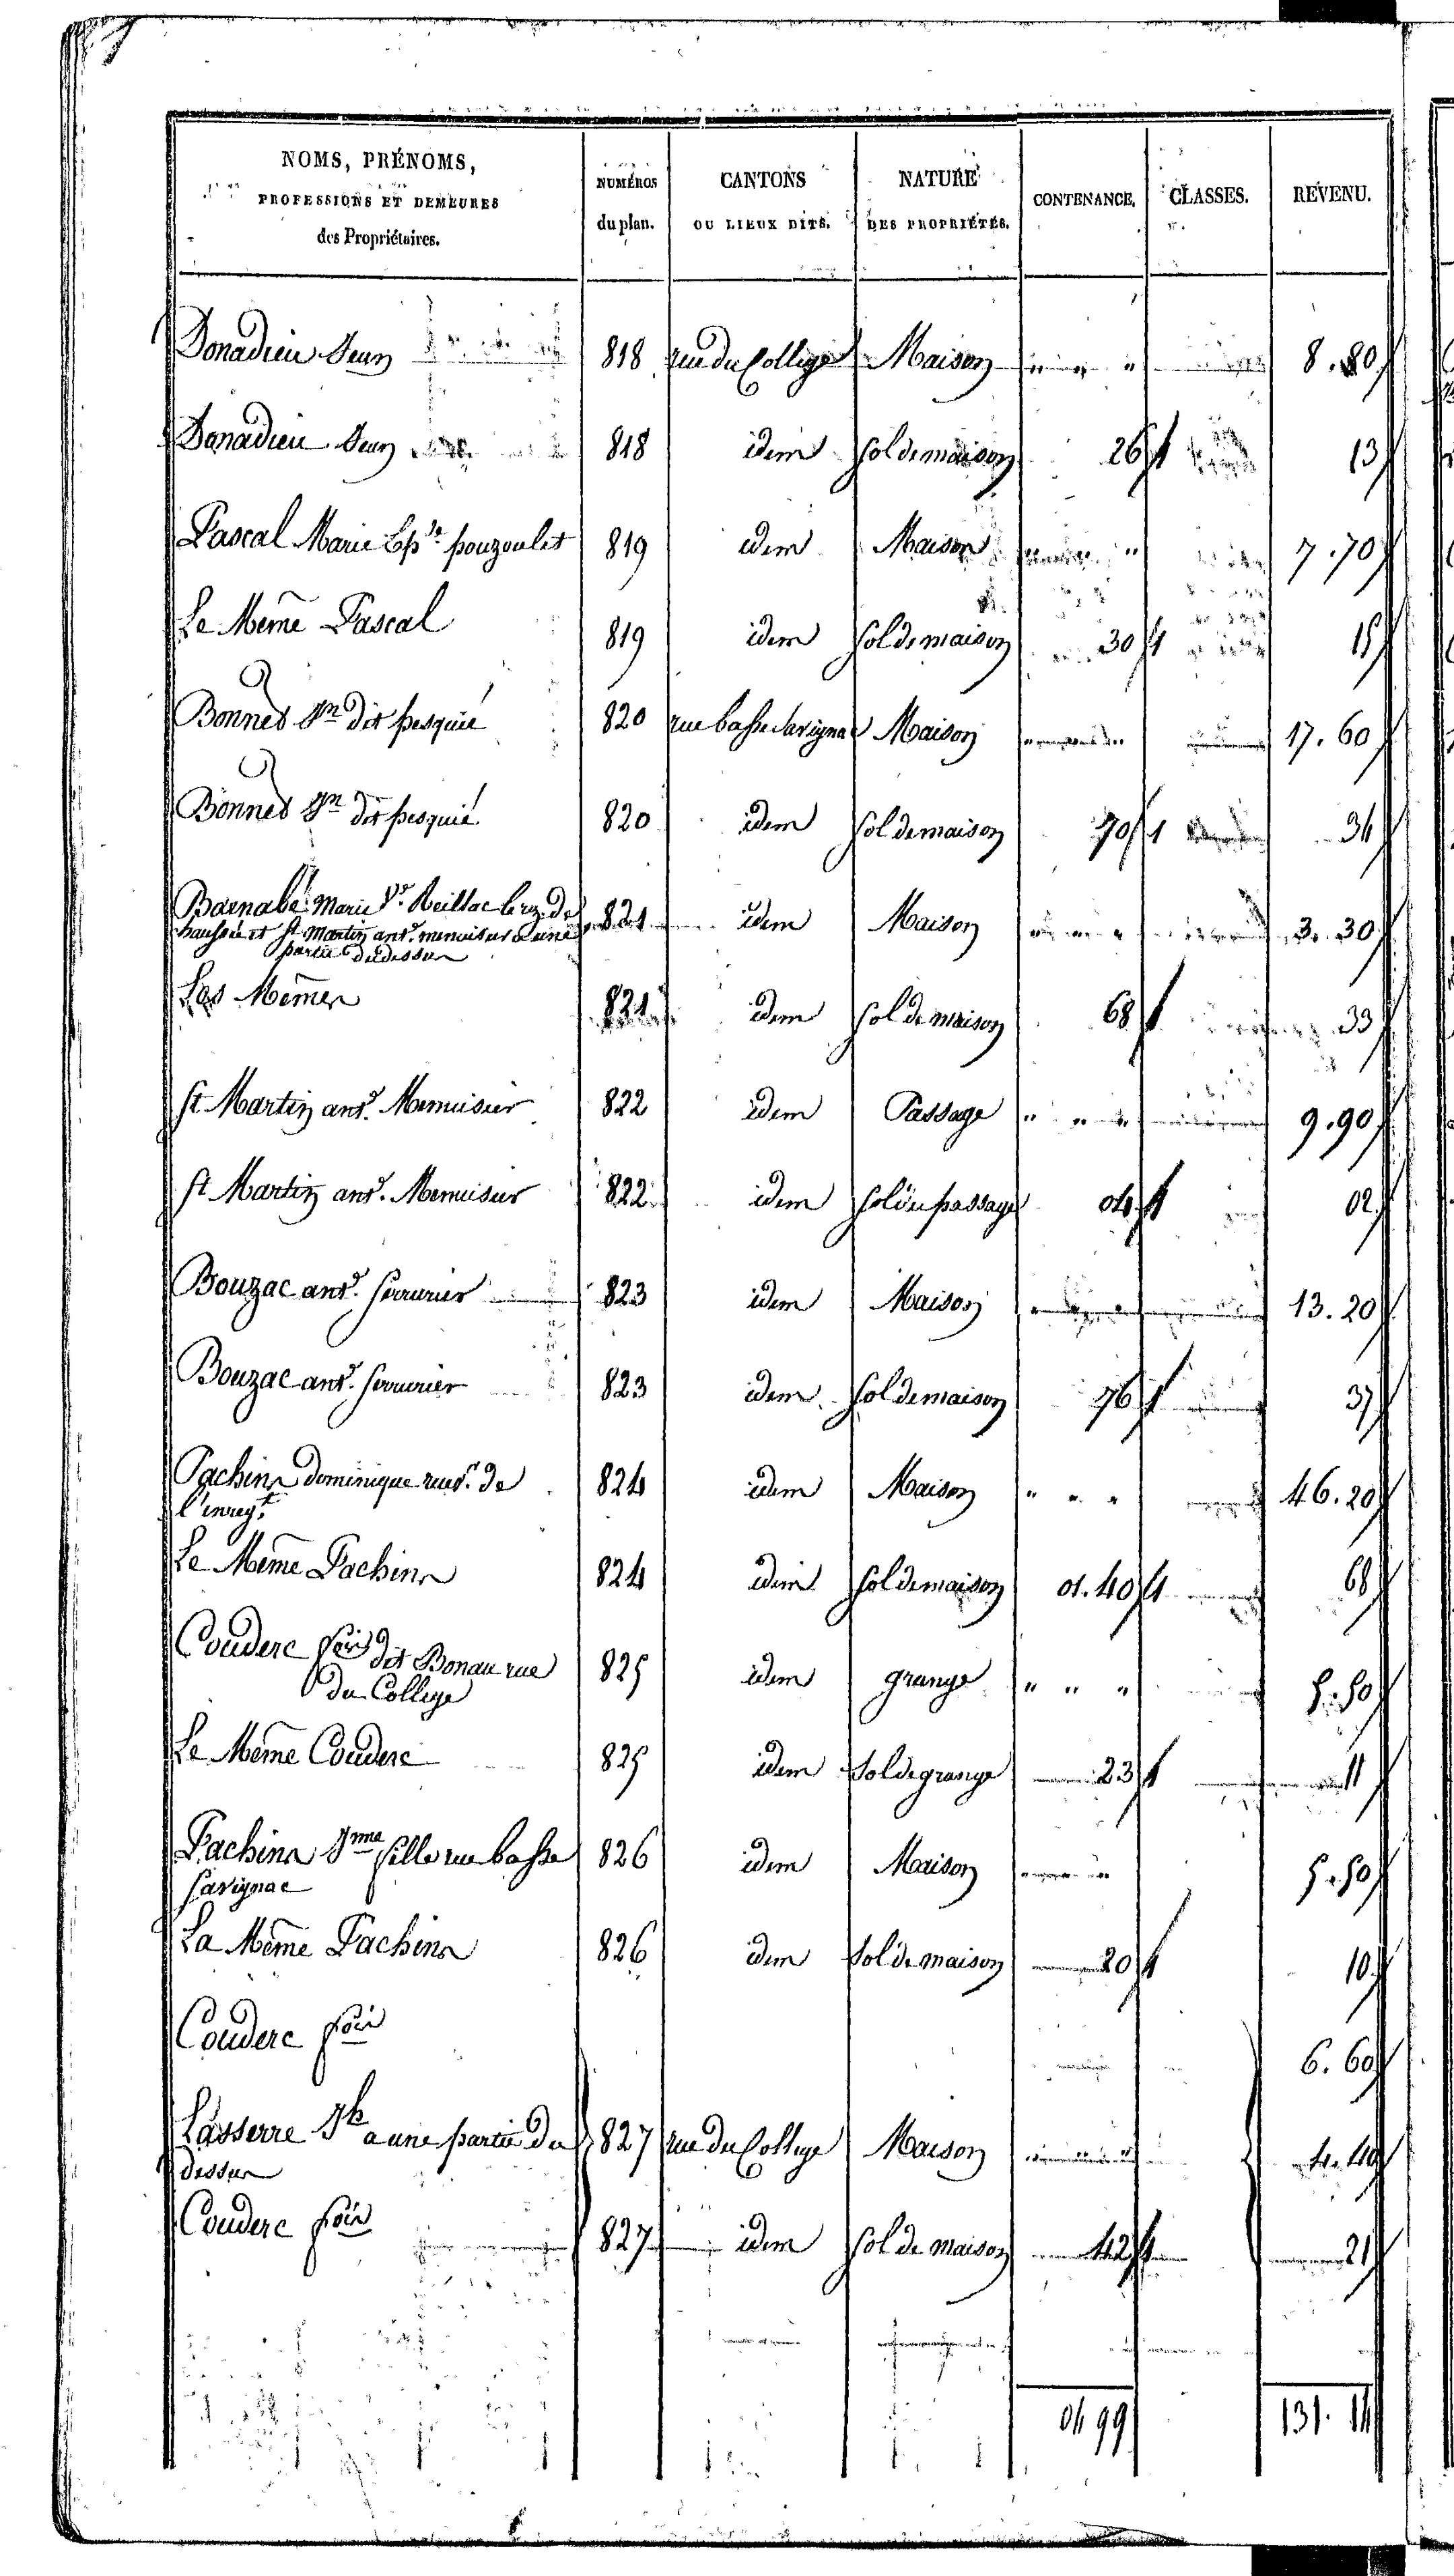 NOMS, PRÉNOMS, PROFESSIONS ET DEMEURES des Propriétaires. NUMÉROS du plan. CANTONS OU LIEUX DITS. NATURE DES PROPRIÉTÉS. CONTENANCE. CLASSES. REVENU.
Donadieu Jean 818 rue du College Maison " " " 8.80
Donadieu Jean 818 idem sol de maison 26 1 13
Pascal Marie Ep.se pouzoulet 819 idem Maison " 7.70
Le Même Pascal 819 idem sol de maison 30 1 15
Bonnet Jn dit pesquié 820 rue basse Savignac Maison 17.60
Bonnet Jn dit pesquié 820 idem sol de maison 70 1 34
Barnabé Marie Ve Reillac le rez de
chaussée et St Martin ant. menuisier a une 821 idem Maison " " " 3.30
partie du dessus
Les Mêmes 821 idem sol de maison 68 1 33
St Martin ant. Menuisier 822 idem Passage " " " 9.90
St Martin ant. Menuisier 822 idem sol du passage 04 1 02
Bouzac ant. serrurier 823 idem Maison 13.20
Bouzac ant. serrurier 823 idem sol de maison 76 1 37
Pachins dominique de 824 idem Maison " " " 46.20
l'enregt.
Le Même Pachins 824 idem sol de maison 01.40 1 68
Couderc fois dit Bonau rue 825 idem grange " " " 5.50
du College
Le Même Couderc 825 idem sol de grange 23 1 11
Pachins Jme fille rue basse 826 idem Maison 5.50
Savignac
La Même Pachins 826 idem sol de maison 20 1 10
Couderc fois 6.60
Lasserre Jh a une partie du 827 rue du College Maison 4.40
dessus
Couderc fois 827 idem sol de maison 42 1 21
04 99 131.14